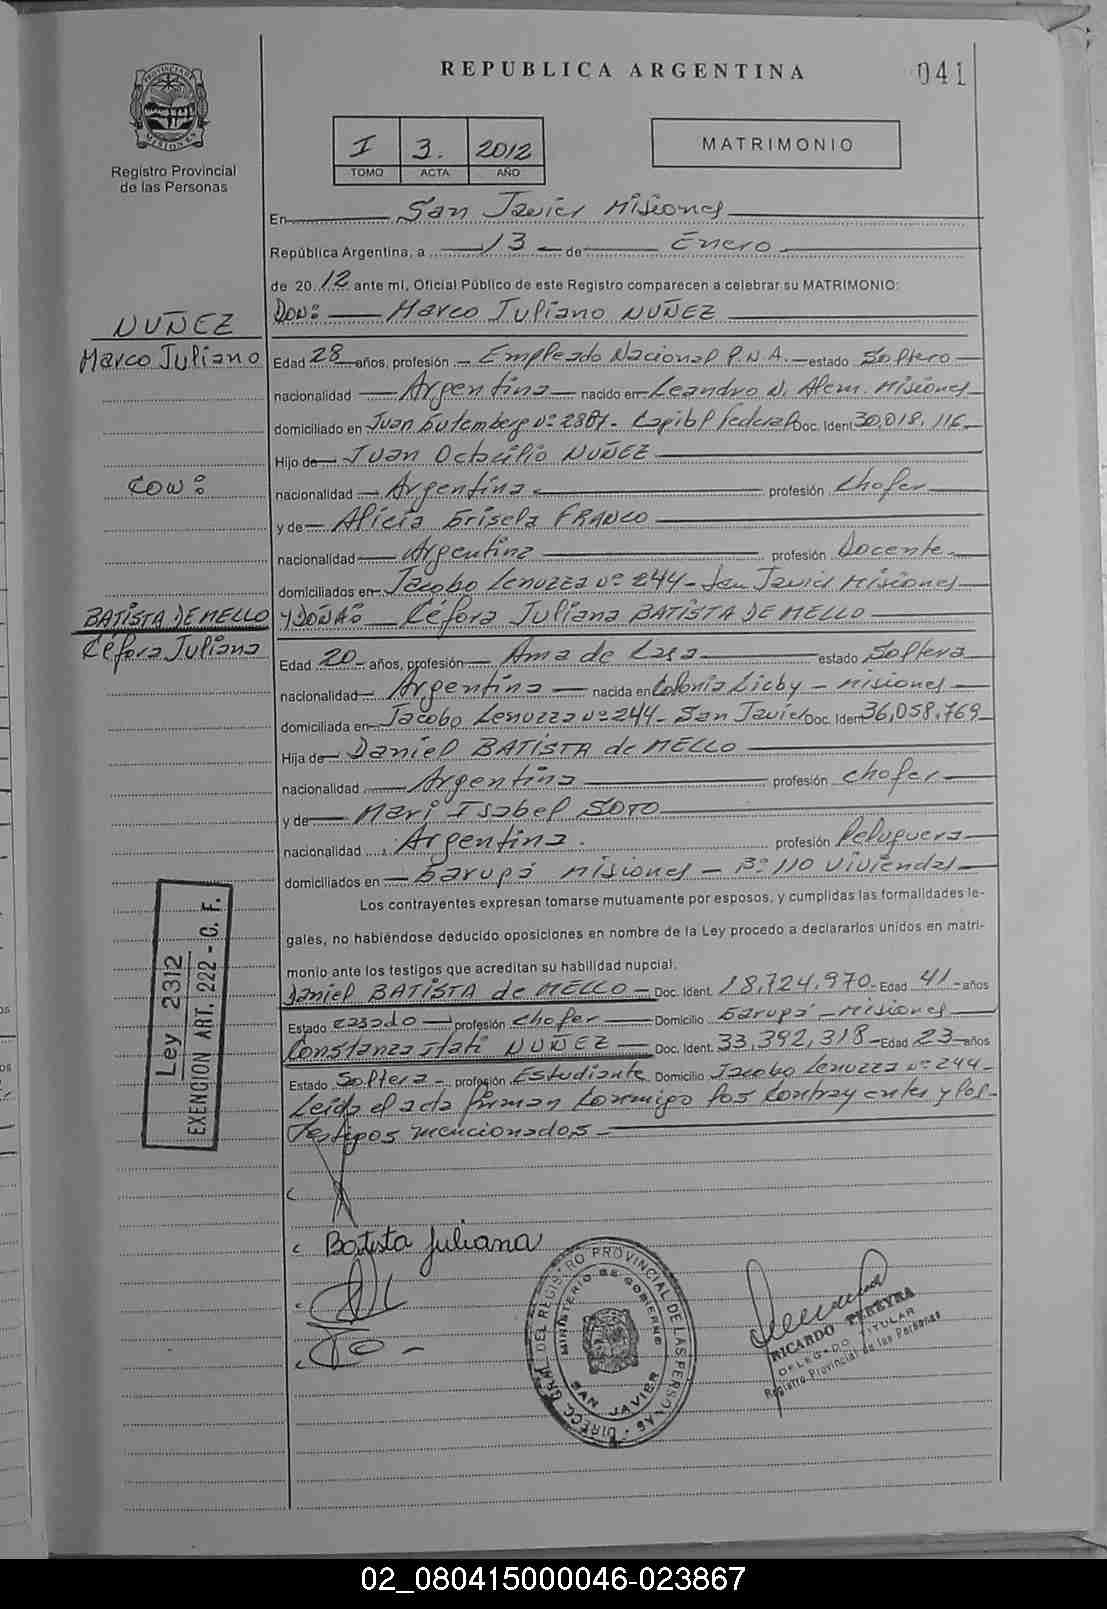 REPUBLICA ARGENTINA
041
PROVINCIA DE MISIONES
Registro Provincial
de las Personas
I 3. 2012
TOMO ACTA AÑO
MATRIMONIO
En San Javier Misiones
República Argentina, a 13 de Enero
de 20 12 ante mi, Oficial Público de este Registro comparecen a celebrar su MATRIMONIO:
NUÑEZ
Marco Juliano
CON:
BATISTA DE MELLO
Céfora Juliana
DON: Marco Juliano NUÑEZ
Edad 28 años, profesión Empleado Nacional P.N.A. estado Soltero
nacionalidad Argentina nacido en Leandro N. Alem. Misiones
domiciliado en Juan Gutemberg nº Capital Federal Doc. Ident 30,018,116
Hijo de Juan Octavio NUÑEZ
nacionalidad Argentina profesión Chofer
y de Alicia Grisela FRANCO
nacionalidad Argentina profesión Docente
domiciliados en Jacobo Lenuzza nº 244 - San Javier Misiones
Y DOÑA: Céfora Juliana BATISTA DE MELLO
Edad 20 años, profesión Ama de Casa estado Soltera
nacionalidad Argentina nacida en Colonia Liebig - Misiones
domiciliada en Jacobo Lenuzza nº 244 - San Javier Doc. Ident 36,058,769
Hija de Daniel BATISTA de MELLO
nacionalidad Argentina profesión chofer
y de Mari Isabel SOTO
nacionalidad Argentina. profesión Peluquera
domiciliados en Garupá Misiones - Bº 110 Viviendas
Los contrayentes expresan tomarse mutuamente por esposos, y cumplidas las formalidades le-
gales, no habiéndose deducido oposiciones en nombre de la Ley procedo a declararlos unidos en matri-
monio ante los testigos que acreditan su habilidad nupcial.
Daniel BATISTA de MELLO Doc. Ident. 18,724,970 Edad 41 años
Estado casado profesión chofer Domicilio Garupá - Misiones
Constanza Itatí NUÑEZ Doc. Ident. 33,392,318 Edad 23 años
Estado Soltera profesión Estudiante Domicilio Jacobo Lenuzza nº 244
Leida el acta firman conmigo los contrayentes y los
testigos mencionados
Ley 2312
EXENCION ART. 222 - C. F.
Batista Juliana
DIRECC. GRAL. DEL REGISTRO PROVINCIAL DE LAS PERSONAS
MINISTERIO DE GOBIERNO
SAN JAVIER
RICARDO PEREYRA
DELEGADO TITULAR
Registro Provincial de las Personas
02_080415000046-023867